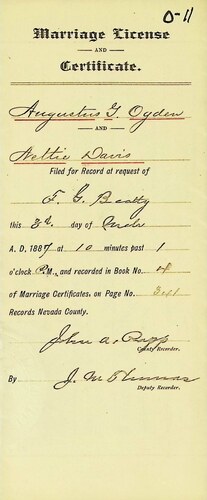 O-11
Marriage License
AND
Certificate.
Augustus G. Ogden
AND
Nettie Davis
Filed for Record at request of
F. G. Beatty
this 3d. day of
A. D. 1887 at 10 minutes past 1
o'clock P.M., and recorded in Book No. 4
of Marriage Certificates, on Page No. 341
Records Nevada County.
John A. Rapp
County Recorder.
By J. M. Thomas
Deputy Recorder.